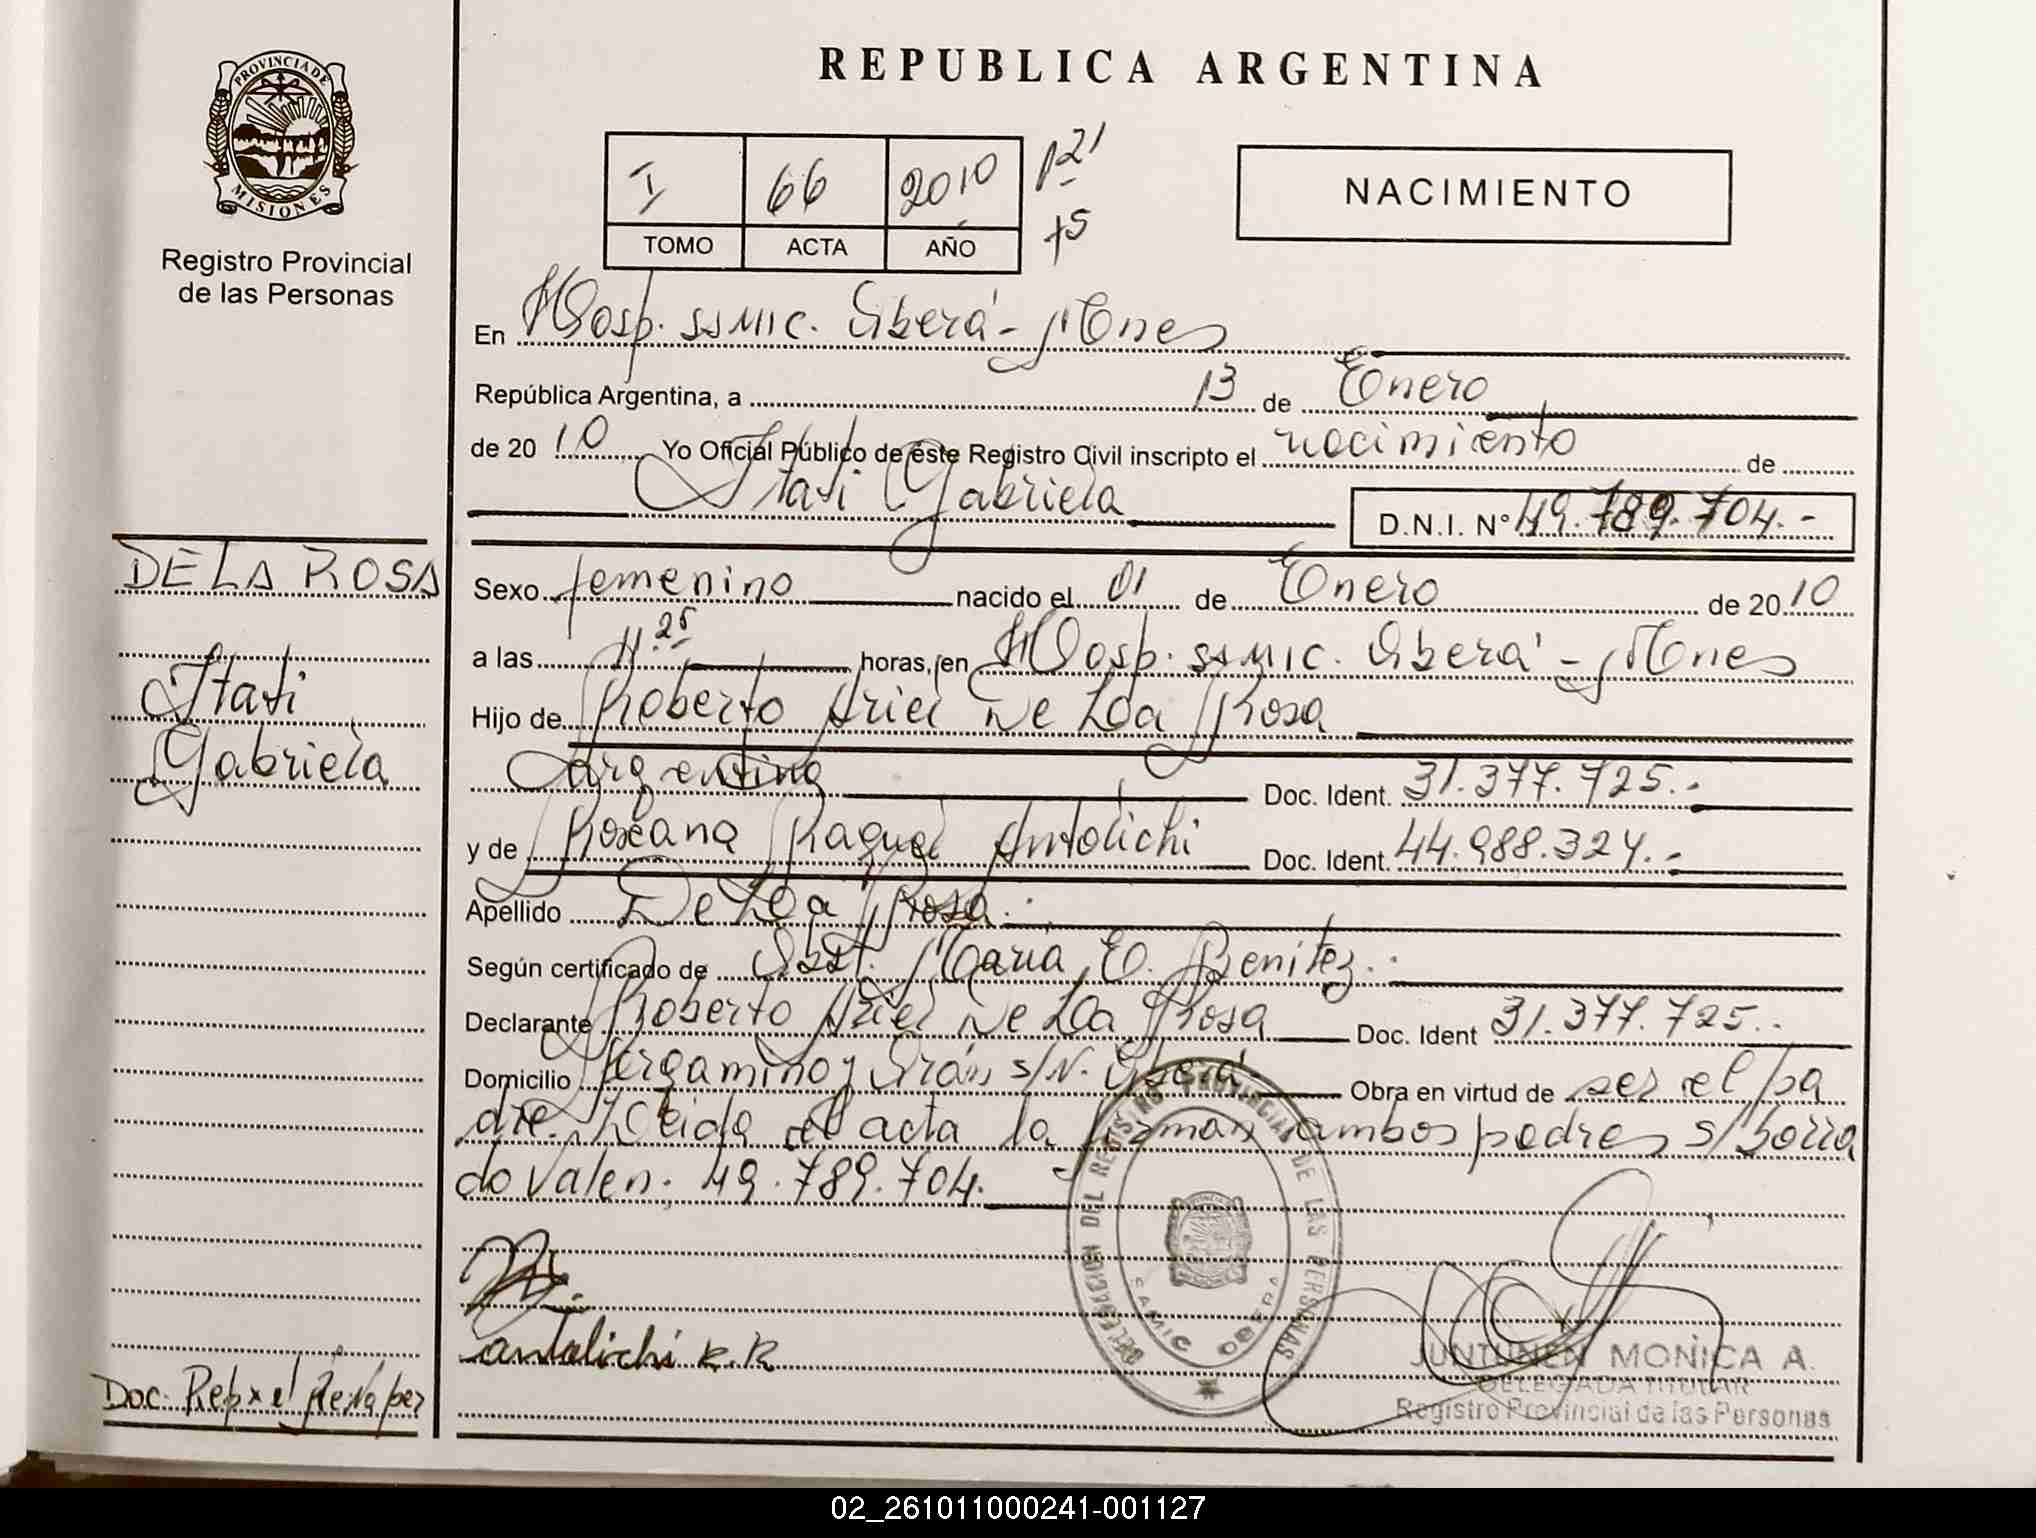 PROVINCIA DE
MISIONES
Registro Provincial
de las Personas
REPUBLICA ARGENTINA
I 66 2010 P21
TOMO ACTA AÑO +5
NACIMIENTO
En Hosp. SAMIC. Oberá - Mnes
República Argentina, a 13 de Enero
de 2010 Yo Oficial Público de éste Registro Civil inscripto el nacimiento de
Itati Gabriela D.N.I. N° 49.789.704.-
DE LA ROSA
Itati
Gabriela
Sexo femenino nacido el 01 de Enero de 2010
a las 11.25 horas, en Hosp. SAMIC. Oberá - Mnes
Hijo de Roberto Ariel De La Rosa
argentino Doc. Ident. 31.377.725.-
y de Roxana Raquel Antolichi Doc. Ident. 44.988.324.-
Apellido De La Rosa.
Según certificado de Obst. María E. Benitez.
Declarante Roberto Ariel De La Rosa Doc. Ident 31.377.725.
Domicilio Pergamino y Orán s/N. Oberá Obra en virtud de ser el pa
dre. Leida el acta la firman ambos padres s/borra
do Valen. 49.789.704.
antolichi R.R
DELEGACION DEL REGISTRO PROVINCIAL DE LAS PERSONAS
SAMIC OBERA
JUNTUNEN MONICA A.
DELEGADA TITULAR
Registro Provincial de las Personas
Doc. Rep x el Renaper
02_261011000241-001127